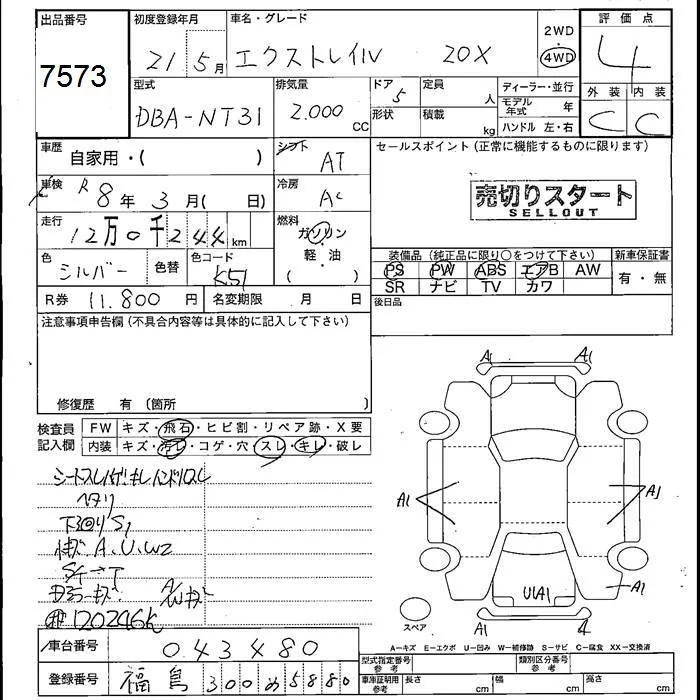 出品番号 初度登録年月 車名・グレード 評価点
7573 21 5月 エクストレイル 20X 2WD 4WD 4
型式 排気量 ドア 定員 ディーラー・並行 外装 内装
DBA-NT31 2.000 CC 5 人 モデル年式 年 C C
形状 積載 kg ハンドル 左・右
車歴 自家用・( ) シフト AT セールスポイント (正常に機能するものに限ります)
車検 R 8年 3月( 日) 冷房 AC 売切りスタート
SELLOUT
走行 12万0千244km 燃料 ガソリン 軽・油 ( )
装備品 (純正品に限り○をつけて下さい) 新車保証書
色 シルバー 色替 色コード K51 PS PW ABS エアB AW 有・無
SR ナビ TV カワ
R券 11.800円 名変期限 月 日 後日品
注意事項申告欄 (不具合内容等は具体的に記入して下さい)
修復歴 有 (箇所 )
検査員記入欄 FW キズ・飛石・ヒビ割・リペア跡・X要
内装 キズ・汚レ・コゲ・穴・スレ・キレ・破レ
A1 A1
ヘタリ
A1 A1
A、U、W2
U1A1 A1
120246k
スペア A1 4
A-キズ E-エクボ U-凹み W-補修跡 S-サビ C-腐食 XX-交換済
車台番号 043480 型式指定番号 参考 類別区分番号 参考
登録番号 福島 300め5880 車庫証明用 参考 長さ cm 幅 cm 高さ cm